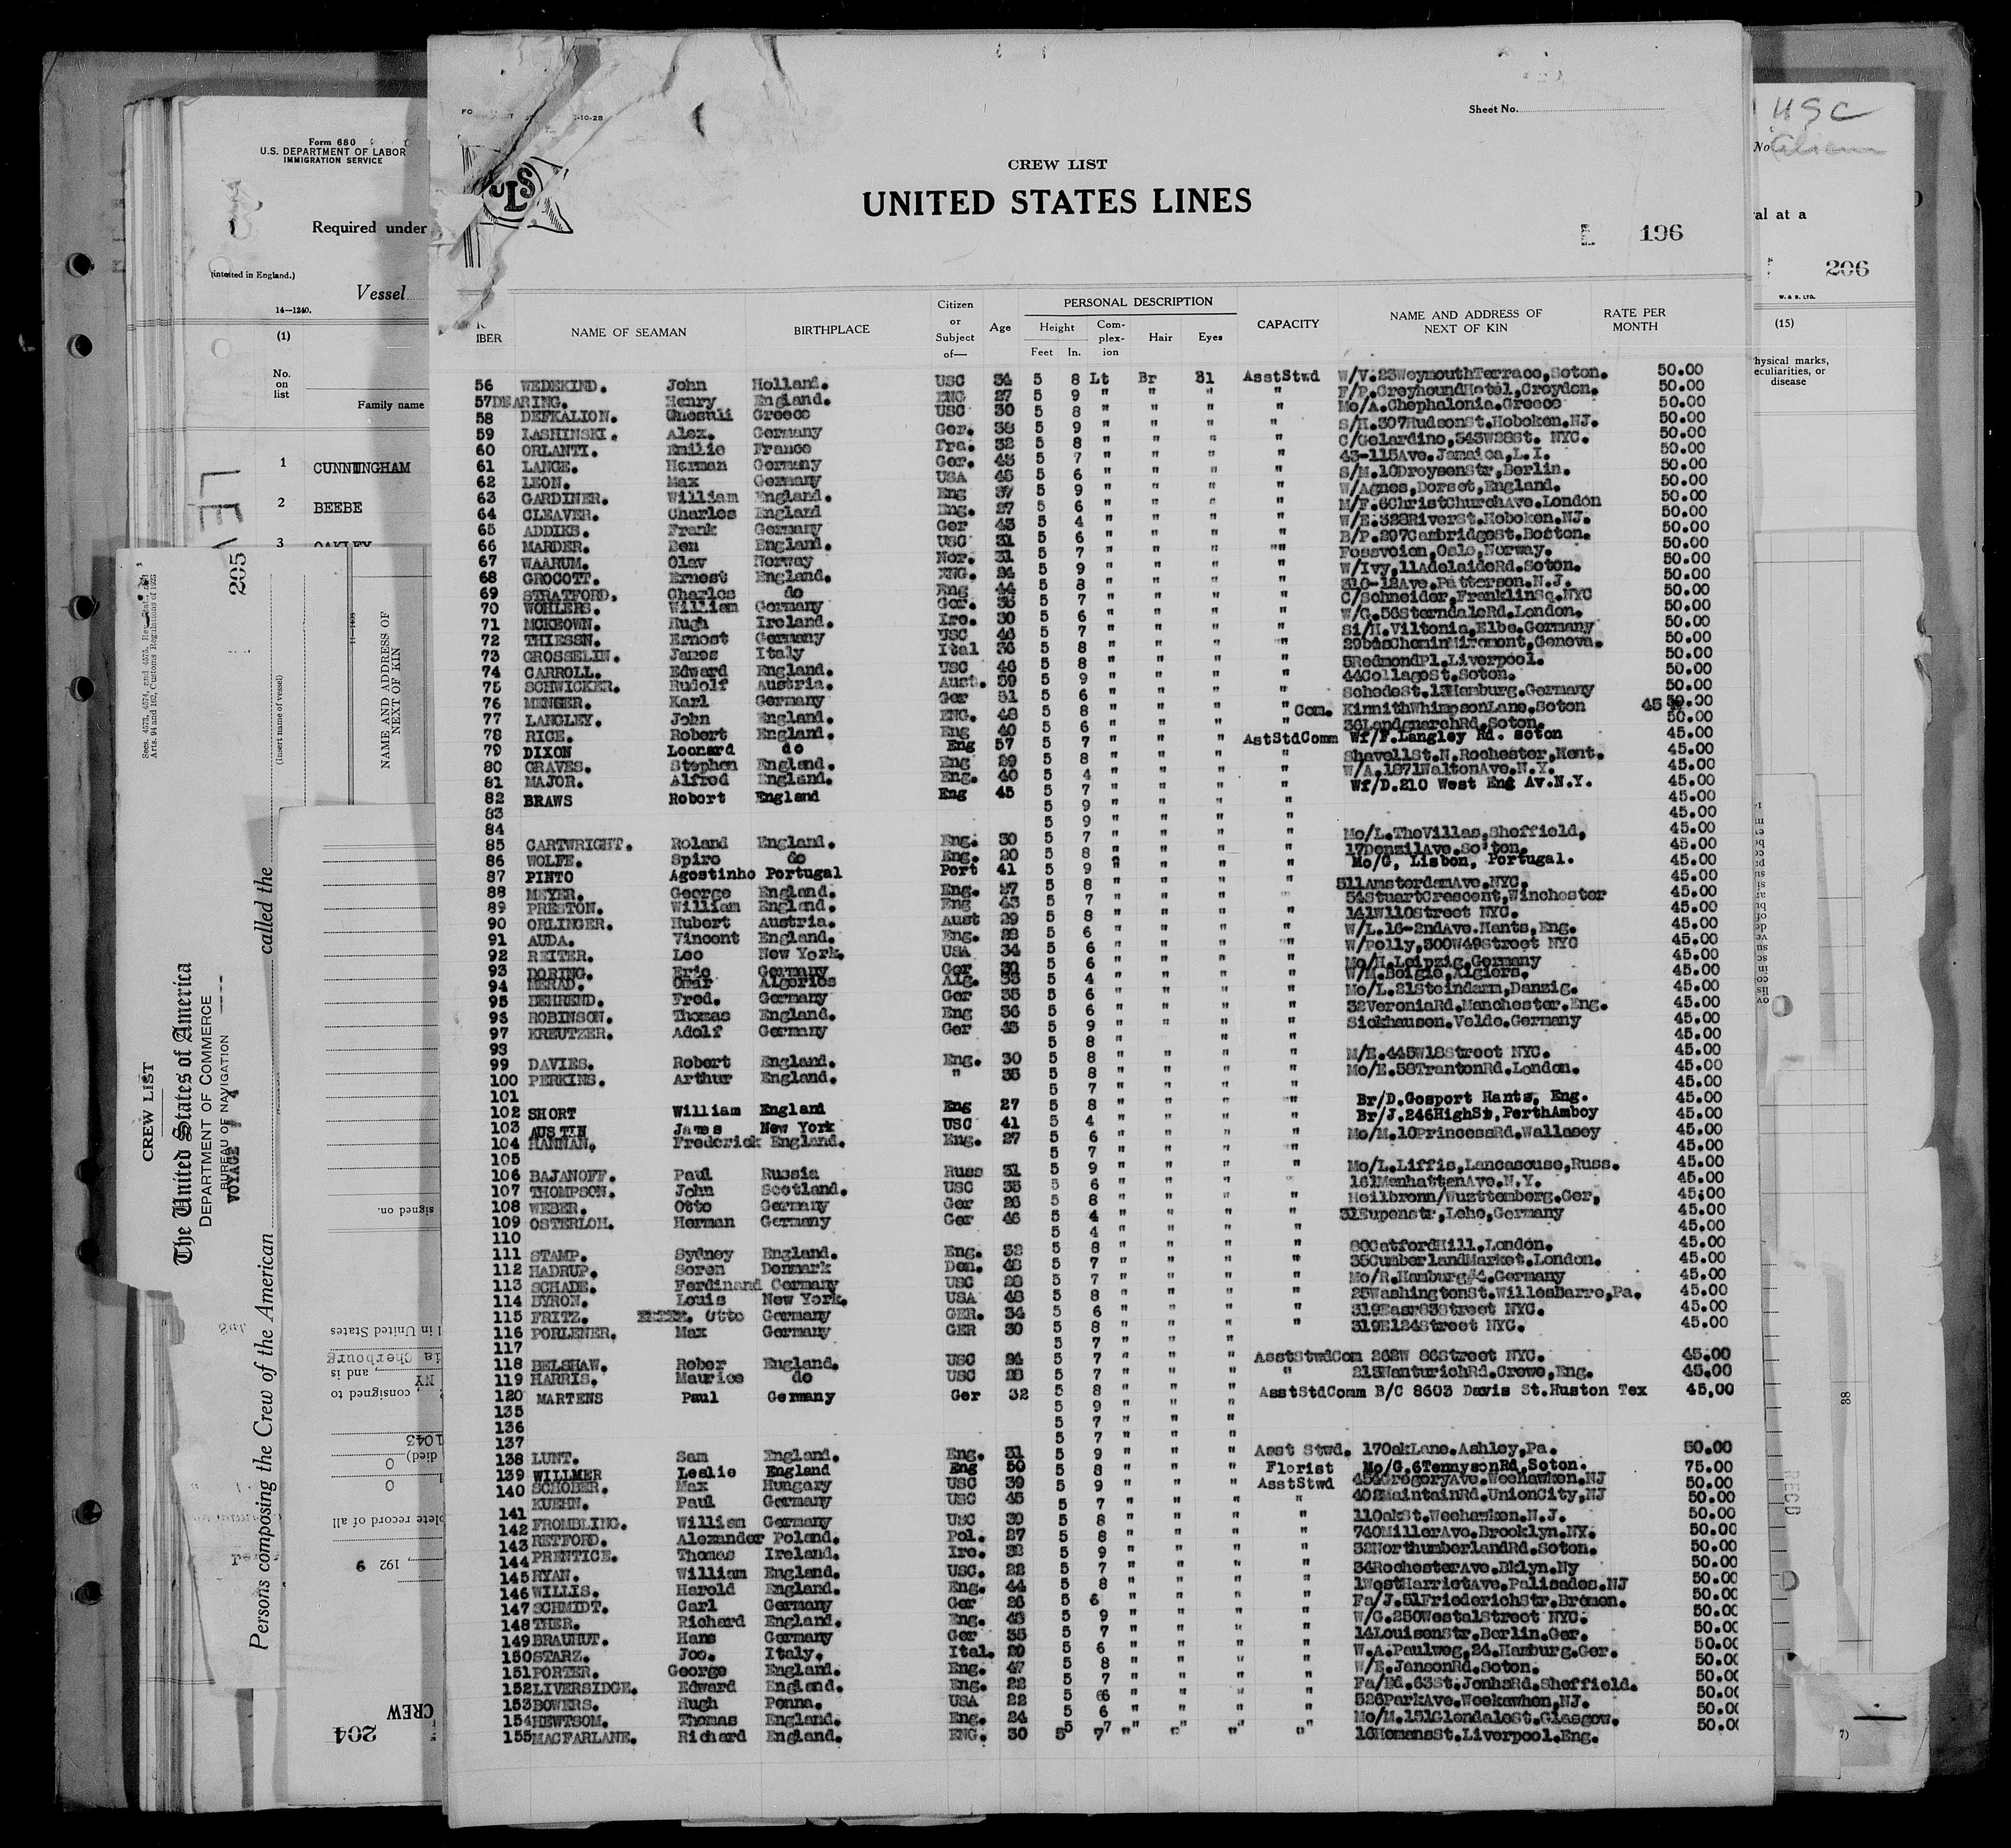 Form 680
U.S. DEPARTMENT OF LABOR
IMMIGRATION SERVICE
Required under
Vessel
14—1240.
(1)
No.
on
list
Family name
1 CUNNINGHAM
2 BEEBE
3
205
CREW LIST
The United States of America
DEPARTMENT OF COMMERCE
BUREAU OF NAVIGATION
VOYAGE
Persons composing the Crew of the American
called the
(Insert name of vessel)
NAME AND ADDRESS OF
NEXT OF KIN
signed on.
in United States
Cherbourg
, and is
NY
, consigned to
1043
died)
0
0
plete record of all
, 192 9
CREW
204
USC
No
al at a
206
W. & S. LTD.
(15)
hysical marks,
eculiarities, or
disease
88
RECD
Sheet No.
CREW LIST
UNITED STATES LINES
196
NAME OF SEAMAN BIRTHPLACE Citizen or Subject of— Age PERSONAL DESCRIPTION Height Feet In. Com-plex-ion Hair Eyes CAPACITY NAME AND ADDRESS OF NEXT OF KIN RATE PER MONTH
56 WEDEKIND. John Holland. USC 34 5 8 Lt Br Bl AsstStwd W/V.23WeymouthTerrace,Soton. 50.00
57 DEARING. Henry England. ENG 27 5 9 " " " " F/P.GreyhoundHotel,Croydon. 50.00
58 DEFKALION. Greece USC 30 5 8 " " " " Mo/A.Chephalonia.Greece 50.00
59 LASHINSKI. Alex. Germany Ger. 38 5 9 " " " " S/H.307HudsonSt.Hoboken.NJ. 50.00
60 ORLANTI. Emilio France Fra. 32 5 8 " " " " C/Gelardino,343W28St. NYC. 50.00
61 LANGE. Herman Germany Ger. 45 5 7 " " " " 43-115Ave.Jamaica,L.I. 50.00
62 LEON. Max Germany USA 46 5 6 " " " " S/M.10DroysenStr,Berlin. 50.00
63 GARDINER. William England. Eng 37 5 9 " " " " W/Agnes,Dorset,England. 50.00
64 CLEAVER. Charles England Eng. 27 5 6 " " " " M/F.6ChristChurchAve.London 50.00
65 ADDIKS. Frank Germany Ger 43 5 4 " " " " W/E.328RiverSt.Hoboken.NJ. 50.00
66 MARDER. Ben England. USC 31 5 6 " " " "" B/P.297CambridgeSt.Boston. 50.00
67 WAARUM. Olav Norway Nor. 31 5 7 " " " " Fossveien,Oslo,Norway. 50.00
68 GROCOTT. Ernest England. ENG. 24 5 9 " " " " W/Ivy,11AdelaideRd.Soton. 50.00
69 STRATFORD. Charles do Eng 44 5 8 " " " " 310-12Ave.Patterson.N.J. 50.00
70 WOHLERS. William Germany Ger. 35 5 7 " " " " C/Schneider,FranklinSq.NYC 50.00
71 MCKEOWN. Hugh Ireland. Ire. 30 5 6 " " " " W/G.56SterndaleRd.London. 50.00
72 THIESSN. Ernest Germany USC 46 5 7 " " " " Si/H.Viltonia,Elbe.Germany 50.00
73 GROSSELIN. James Italy Ital 36 5 8 " " " " 29bdsCheminMiremont,Geneva. 50.00
74 CARROLL. Edward England. USC 46 5 8 " " " " 5RedmondPl.Liverpool. 50.00
75 SCHWICKER. Rudolf Austria. Aust. 59 5 9 " " " " 44CollageSt.Soton. 50.00
76 MENGER. Karl Germany Ger 31 5 6 " " " " SchedeSt.13Hamburg.Germany 50.00
77 LANGLEY. John England. ENG. 48 5 8 " " " "Com. KinnithWhimpsonLane.Soton 45
78 RICE. Robert England. Eng 40 5 6 " " " 36LandguardRd.Soton. 50.00
79 DIXON Leonard do Eng 57 5 7 " " " AstStdComm Wf/F.Langley Rd. soton 45.00
80 GRAVES. Stephen England. Eng 29 5 8 " " " " ShavellSt.N.Rochester,Kent. 45.00
81 MAJOR. Alfred England. Eng. 40 5 4 " " " " W/A.1871WaltonAve.N.Y. 45.00
82 BRAWS Robert England Eng 45 5 7 " " " " Wf/D.210 West Eng Av.N.Y. 45.00
83 5 9 " " " " 45.00
84 5 9 " " " " 45.00
85 CARTWRIGHT. Roland England. Eng. 30 5 7 " " " " Mo/L.TheVillas,Sheffield, 45.00
86 WOLFE. Spiro do Eng. 20 5 8 " " " " 17DenzilAve.So'ton. 45.00
87 PINTO Agostinho Portugal Port 41 5 9 " " " " Mo/C, Lisbon, Portugal. 45.00
88 MEYER. George England. Eng. 27 5 8 " " " " 511AmsterdamAve.NYC. 45.00
89 PRESTON. William England. Eng 43 5 7 " " " " 54StuartCrescent,Winchester 45.00
90 ORLINGER. Hubert Austria. Aust 29 5 8 " " " " 141W110Street NYC. 45.00
91 AUDA. Vincent England. Eng. 28 5 6 " " " " W/L.16-2ndAve.Hants,Eng. 45.00
92 REITER. Leo New York. USA 34 5 6 " " " " W/Polly,300W49Street NYC 45.00
93 DORING. Eric Germany Ger 30 5 6 " " " " Mo/H.Leipzig,Germany 45.00
94 MERAD. Omar Algeries Alg. 35 5 4 " " " " W/M.Boigie,Algiers. 45.00
95 BEHREND. Fred. Germany Ger 35 5 6 " " " " Mo/L.21Steindamm,Danzig. 45.00
96 ROBINSON. Thomas England. Eng 36 5 6 " " " " 32VeroniaRd.Manchester.Eng. 45.00
97 KREUTZER. Adolf Germany Ger 45 5 9 " " " " Sickhausen.Velde.Germany 45.00
98 5 8 " " 45.00
99 DAVIES. Robert England. Eng. 30 5 8 " " " " M/E.445W18Street NYC. 45.00
100 PERKINS. Arthur England. " 35 5 8 " " " " Mo/E.58TrantonRd.London. 45.00
101 5 7 " " " " 45.00
102 SHORT William England Eng 27 5 8 " " " " Br/D.Gosport Hants, Eng. 45.00
103 AUSTIN James New York USC 41 5 4 " " " " Br/J.246HighSt,PerthAmboy 45.00
104 HANNAN. Frederick England. Eng. 27 5 6 " " " " Mo/M.10PrincessRd.Wallasey 45.00
105 5 7 " " " 45.00
106 BAJANOFF. Paul Russia Russ 31 5 9 " " " " Mo/L.Liffis,Lancasouse,Russ. 45.00
107 THOMPSON. John Scotland. USC 35 5 6 " " " " 161ManhattanAve.N.Y. 45.00
108 WEBER. Otto Germany Ger 26 5 8 " " " " Heilbronn/Wurttemberg.Ger, 45;00
109 OSTERLOH. Herman Germany Ger 46 5 4 " " " " 31Eupenstr,Lehe,Germany 45.00
110 5 4 " " " " 45.00
111 STAMP. Sydney England. Eng. 32 5 8 " " " " 80CatfordHill.London. 45.00
112 HADRUP. Soren Denmark Den. 48 5 7 " " " " 35CumberlandMarket.London. 45.00
113 SCHADE. Ferdinand Germany USC 28 5 7 " " " " Mo/R.Hamburg#4.Germany 45.00
114 BYRON. Louis New York. USA 48 5 8 " " " " 25WashingtonSt.WillesBarre,Pa. 45.00
115 FRITZ. Otto Germany GER. 34 5 6 " " " " 319Easr83Street NYC. 45.00
116 PORLENER. Max Germany GER 30 5 8 " " " " 319E124Street NYC. 45.00
117 5 7 " " "
118 BELSHAW. Rober England. USC 24 5 7 " " " AsstStwdCom 262W 86Street NYC. 45.00
119 HARRIS. Maurice do USC 28 5 7 " " " " 215WanturichRd.Crewe,Eng. 45.00
120 MARTENS Paul Germany Ger 32 5 8 " " " AsstStdComm B/C 8603 Davis St.Huston Tex 45,00
135 5 9 " " "
136 5 7 " " "
137 5 7 " " "
138 LUNT. Sam England. Eng. 31 5 9 " " " Asst Stwd. 17OakLane.Ashley,Pa. 50.00
139 WILLMER Leslie England Eng 50 5 8 " " " Florist Mo/G.6TennysonRd,Soton. 75.00
140 SCHOBER. Max Hungary USC 39 5 9 " " " AsstStwd 454GregoryAve.Weehawken.NJ 50.00
141 KUEHN. Paul Germany USC 45 5 7 " " " " 408MaintainRd.UnionCity,NJ 50.00
142 FROMBLING. William Germany USC 39 5 8 " " " " 11OakSt.Weehawken.N.J. 50.00
143 RETFORD. Alexander Poland. Pol. 27 5 8 " " " " 740MillerAve.Brooklyn.NY. 50.00
144 PRENTICE. Thomas Ireland. Ire. 32 5 9 " " " " 32NorthumberlandRd.Soton. 50.00
145 RYAN. William England. USC. 22 5 7 " " " " 34RochesterAve.Bklyn.Ny 50.00
146 WILLIS. Harold England. Eng. 44 5 8 " " " " 1WestHarrietAve.Palisades.NJ 50.00
147 SCHMIDT. Carl Germany Ger 26 5 6 " " " " Fa/J.51FriederichStr.Bremen. 50.00
148 THER. Richard England. Eng. 43 5 9 " " " " W/G.250West21Street NYC. 50.00
149 BRAUHUT. Hans Germany Ger 35 5 7 " " " " 14LouisenStr.Berlin.Ger. 50.00
150 STARZ. Joe. Italy. Ital. 29 5 6 " " " " W.A.Paulweg,24.Hamburg.Ger. 50.00
151 PORTER. George England. Eng. 47 5 8 " " " " W/E.JansonRd.Soton. 50.00
152 LIVERSIDGE. Edward England. Eng. 22 5 7 " " " " Fa/Ed.63St.JonhsRd.Sheffield. 50.00
153 BOWERS. Hugh Penna. USA 22 5 6 " " " " 526ParkAve.Weekawhen,NJ. 50.00
154 HEWTSOM. Thomas England. Eng. 24 5 6 " " " " Mo/M.151GlendaleSt.Glasgow. 50.00
155 MACFARLANE. Richard England. ENG. 30 5 7 " " " " 16HomansSt.Liverpool.Eng. 50.00